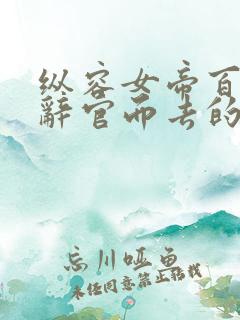 纵容女帝百
辞官而去的
忘川哑鱼
未经同意禁止转载